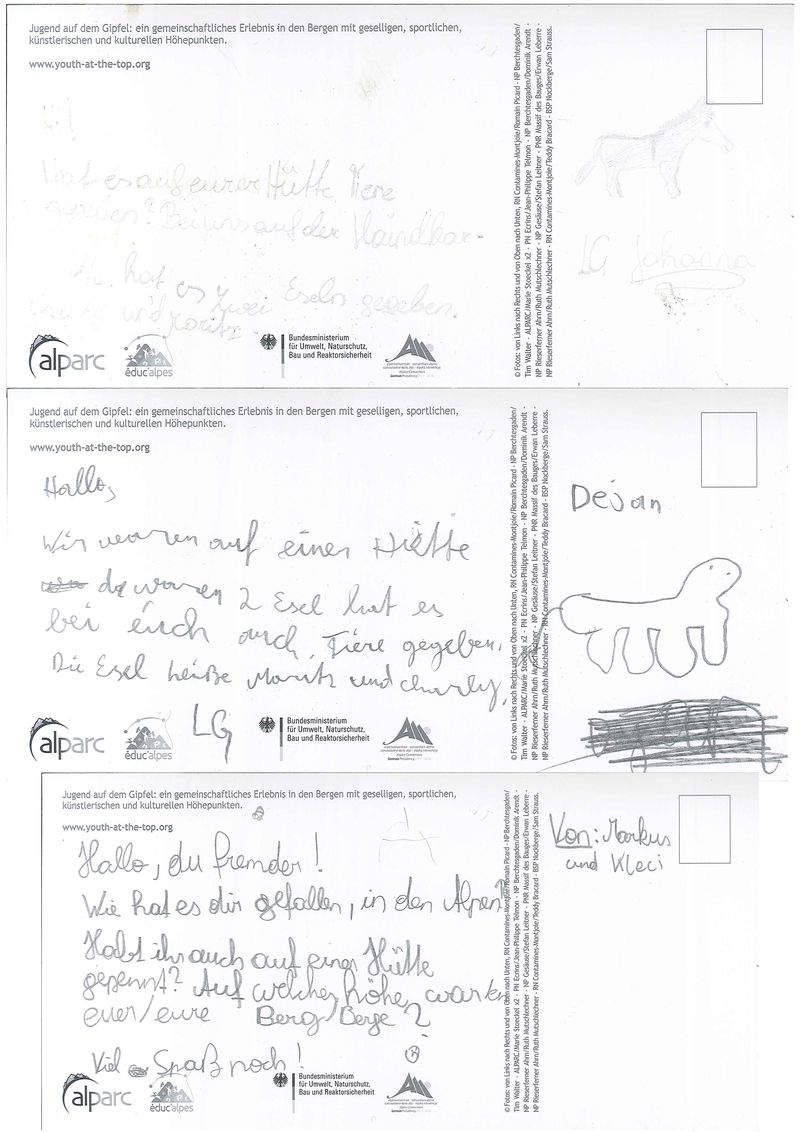 Jugend auf dem Gipfel: ein gemeinschaftliches Erlebnis in den Bergen mit geselligen, sportlichen,
künstlerischen und kulturellen Höhepunkten.
www.youth-at-the-top.org
Hi!
Hat es auf eurer Hütte Tiere
gegeben? Bei uns auf der Haindlkar-
hat es zwei Eseln gegeben.
und Moritz
LG Johanna
alparc
éduc'alpes
Bundesministerium
für Umwelt, Naturschutz,
Bau und Reaktorsicherheit
© Fotos: von Links nach Rechts und von Oben nach Unten, RN Contamines-Montjoie/Romain Picard - NP Berchtesgaden/
Tim Walter - ALPARC/Marie Stoeckel x2 - PN Ecrins/Jean-Philippe Telmon - NP Berchtesgaden/Dominik Arendt -
NP Rieserferner Ahrn/Ruth Mutschlechner - NP Gesäuse/Stefan Leitner - PNR Massif des Bauges/Erwan Leberre -
NP Rieserferner Ahrn/Ruth Mutschlechner - RN Contamines-Montjoie/Teddy Bracard - BSP Nockberge/Sam Strauss.
Jugend auf dem Gipfel: ein gemeinschaftliches Erlebnis in den Bergen mit geselligen, sportlichen,
künstlerischen und kulturellen Höhepunkten.
www.youth-at-the-top.org
Hallo,
Wir waren auf einer Hütte
da waren 2 Esel hat es
bei euch auch Tiere gegeben.
Die Esel heiße Moritz und charly,
LG
Dejan
alparc
éduc'alpes
Bundesministerium
für Umwelt, Naturschutz,
Bau und Reaktorsicherheit
© Fotos: von Links nach Rechts und von Oben nach Unten, RN Contamines-Montjoie/Romain Picard - NP Berchtesgaden/
Tim Walter - ALPARC/Marie Stoeckel x2 - PN Ecrins/Jean-Philippe Telmon - NP Berchtesgaden/Dominik Arendt -
NP Rieserferner Ahrn/Ruth Mutschlechner - NP Gesäuse/Stefan Leitner - PNR Massif des Bauges/Erwan Leberre -
NP Rieserferner Ahrn/Ruth Mutschlechner - RN Contamines-Montjoie/Teddy Bracard - BSP Nockberge/Sam Strauss.
Jugend auf dem Gipfel: ein gemeinschaftliches Erlebnis in den Bergen mit geselligen, sportlichen,
künstlerischen und kulturellen Höhepunkten.
www.youth-at-the-top.org
Hallo, du fremder!
Wie hat es dir gefallen, in den Alpen?
Habt ihr auch auf einer Hütte
gepennt? Auf welcher höhe, waren
euer/eure Berg/Berge?
Viel Spaß noch!
Von: Markus
und Kleci
alparc
éduc'alpes
Bundesministerium
für Umwelt, Naturschutz,
Bau und Reaktorsicherheit
© Fotos: von Links nach Rechts und von Oben nach Unten, RN Contamines-Montjoie/Romain Picard - NP Berchtesgaden/
Tim Walter - ALPARC/Marie Stoeckel x2 - PN Ecrins/Jean-Philippe Telmon - NP Berchtesgaden/Dominik Arendt -
NP Rieserferner Ahrn/Ruth Mutschlechner - NP Gesäuse/Stefan Leitner - PNR Massif des Bauges/Erwan Leberre -
NP Rieserferner Ahrn/Ruth Mutschlechner - RN Contamines-Montjoie/Teddy Bracard - BSP Nockberge/Sam Strauss.